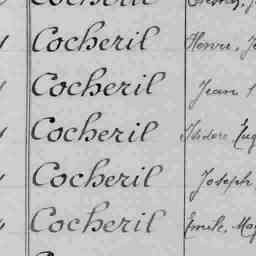 Cocheril Henri, J
Cocheril Jean
Cocheril Isidore Eug
Cocheril Joseph
Cocheril Emile, Ma